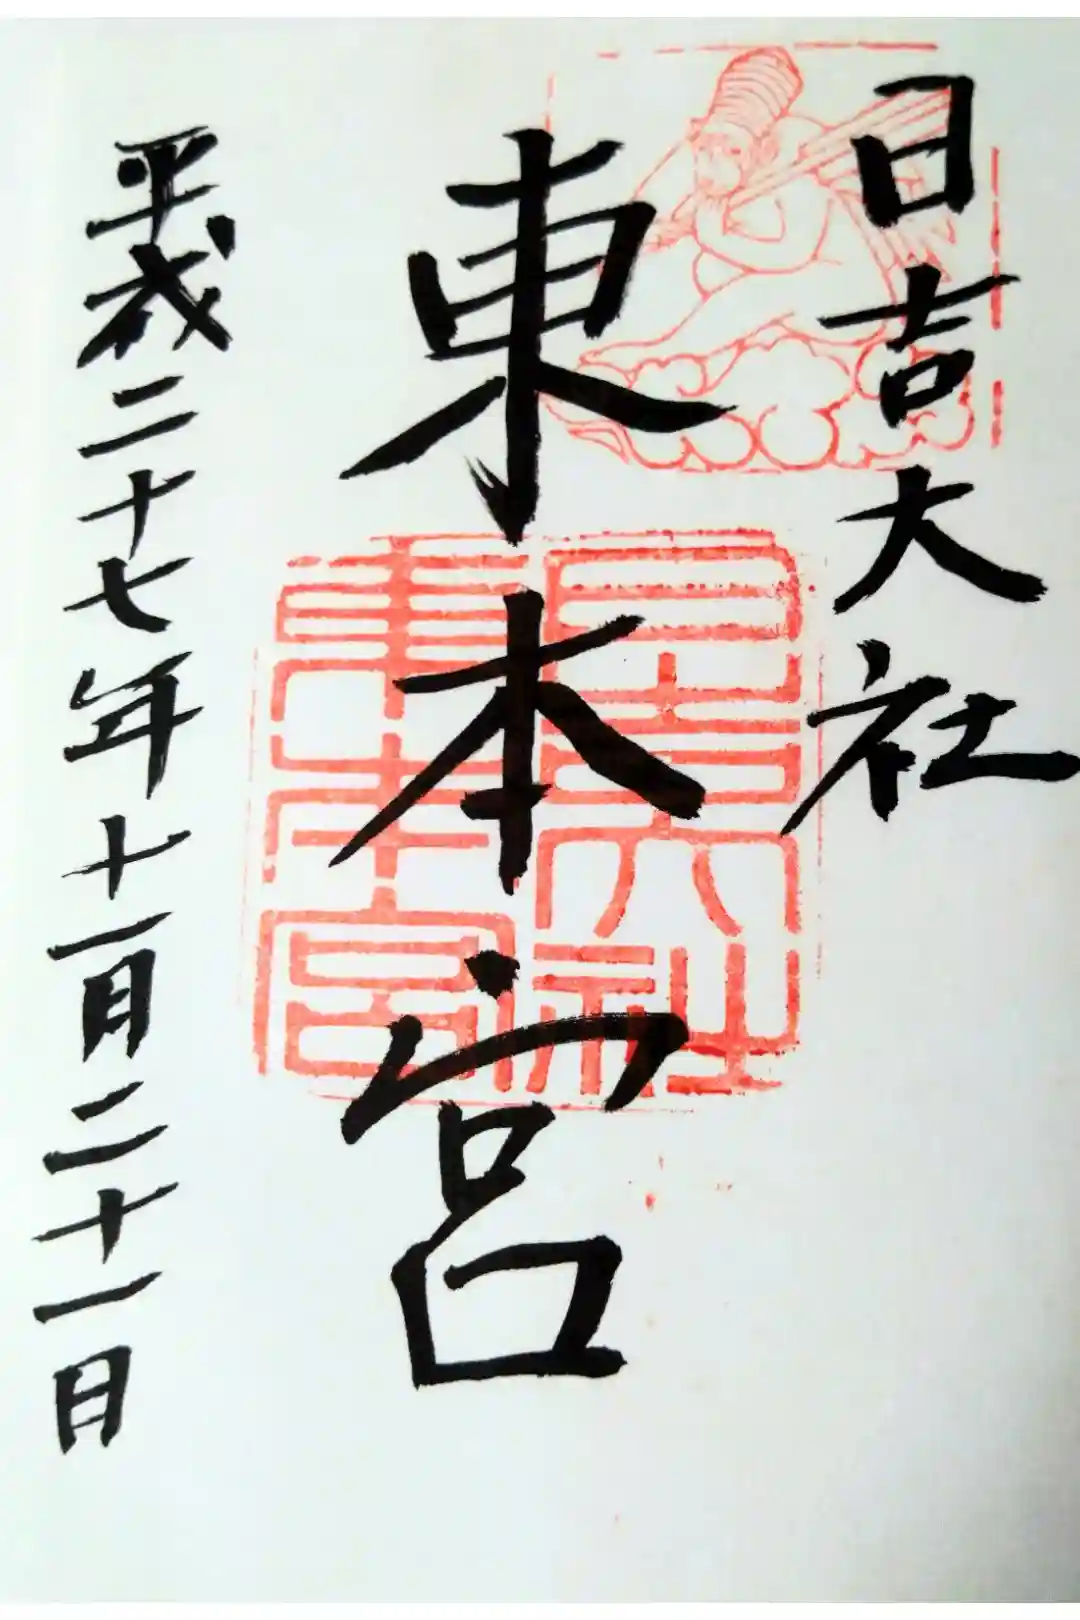 日吉大社
東本宮
日吉大社
東本宮
平成二十七年十一月二十一日